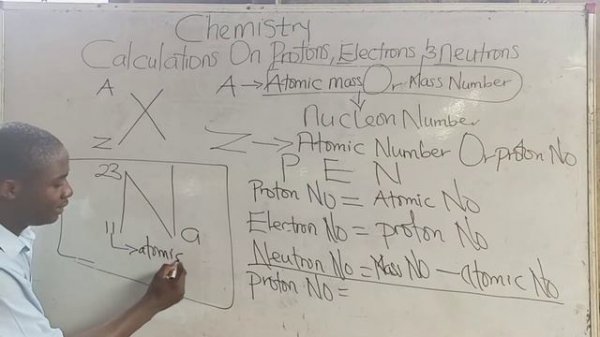 Chemistry
Calculations On Protons, Electrons, & Neutrons
A A → Atomic mass Or Mass Number
X
Nucleon Number
Z Z → Atomic Number Or proton No
P E N
23
Na
11 → atomic
Proton No = Atomic No
Electron No = proton No
Neutron No = Mass No - atomic No
Proton No =